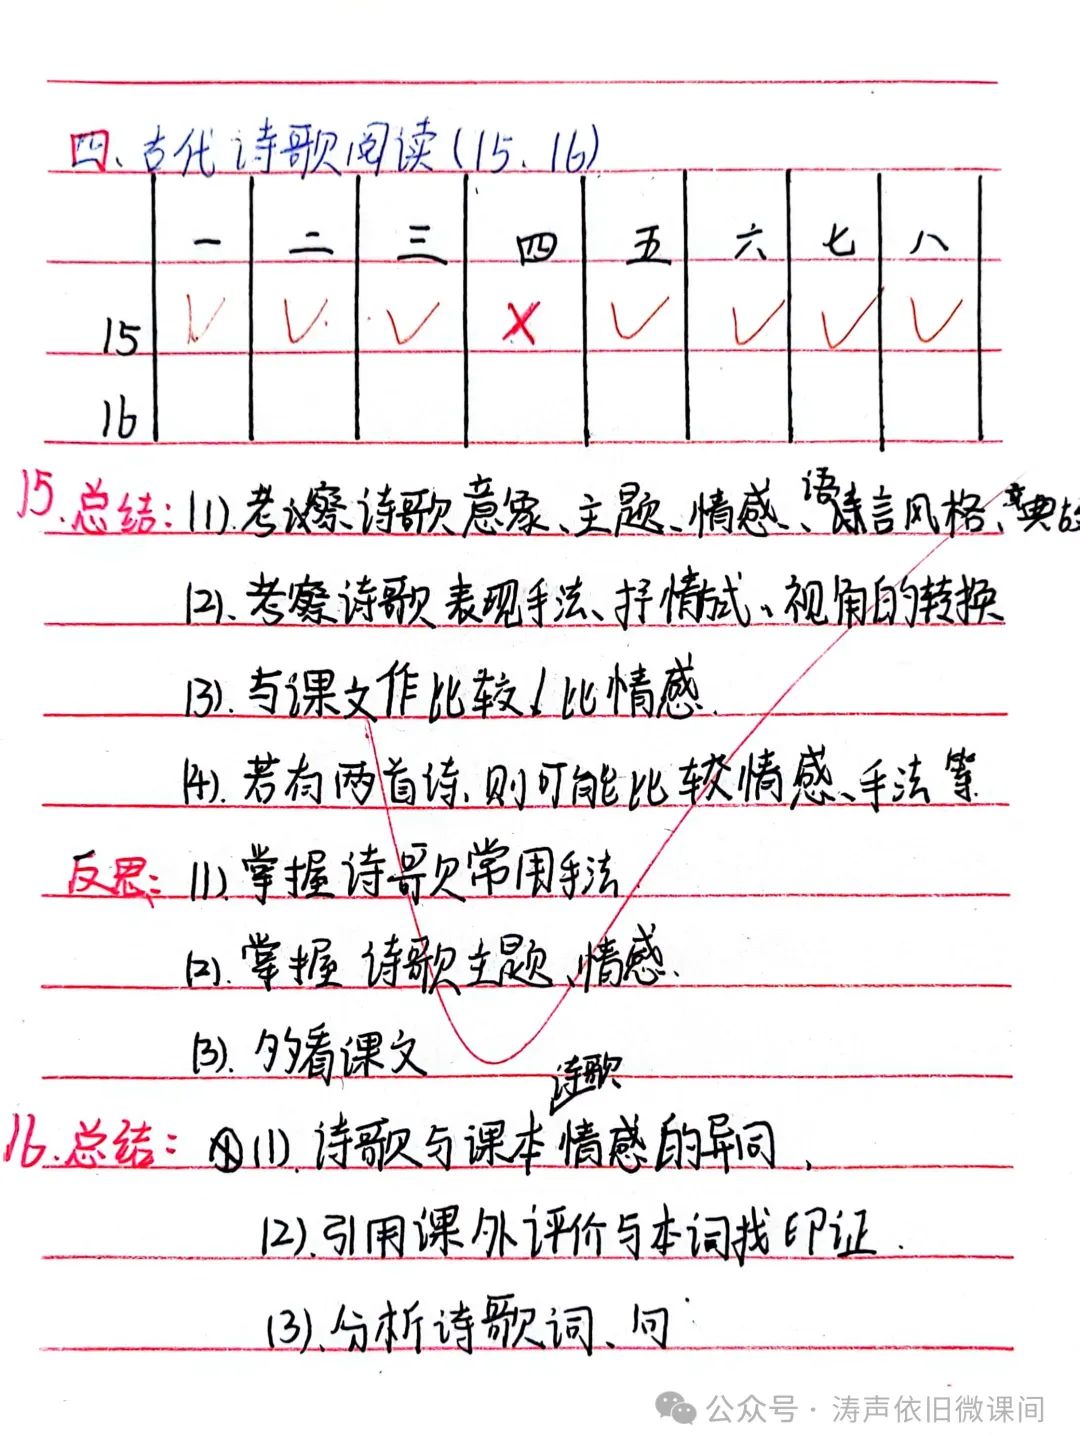 四、古代诗歌阅读(15、16)
一 二 三 四 五 六 七 八
15 ✓ ✓ ✓ ✗ ✓ ✓ ✓ ✓
16
15.总结:(1).考察诗歌意象、主题、情感、语言风格、典故
(2).考察诗歌表现手法、抒情式、视角的转换
(3).与课文作比较!比情感.
(4).若有两首诗,则可能比较情感、手法等.
反思:(1).掌握诗歌常用手法
(2).掌握诗歌主题、情感.
(3).多看课文
诗歌
16.总结:(1).诗歌与课本情感的异同,
(2).引用课外评价与本词找印证.
(3).分析诗歌词、句
公众号·涛声依旧微课间